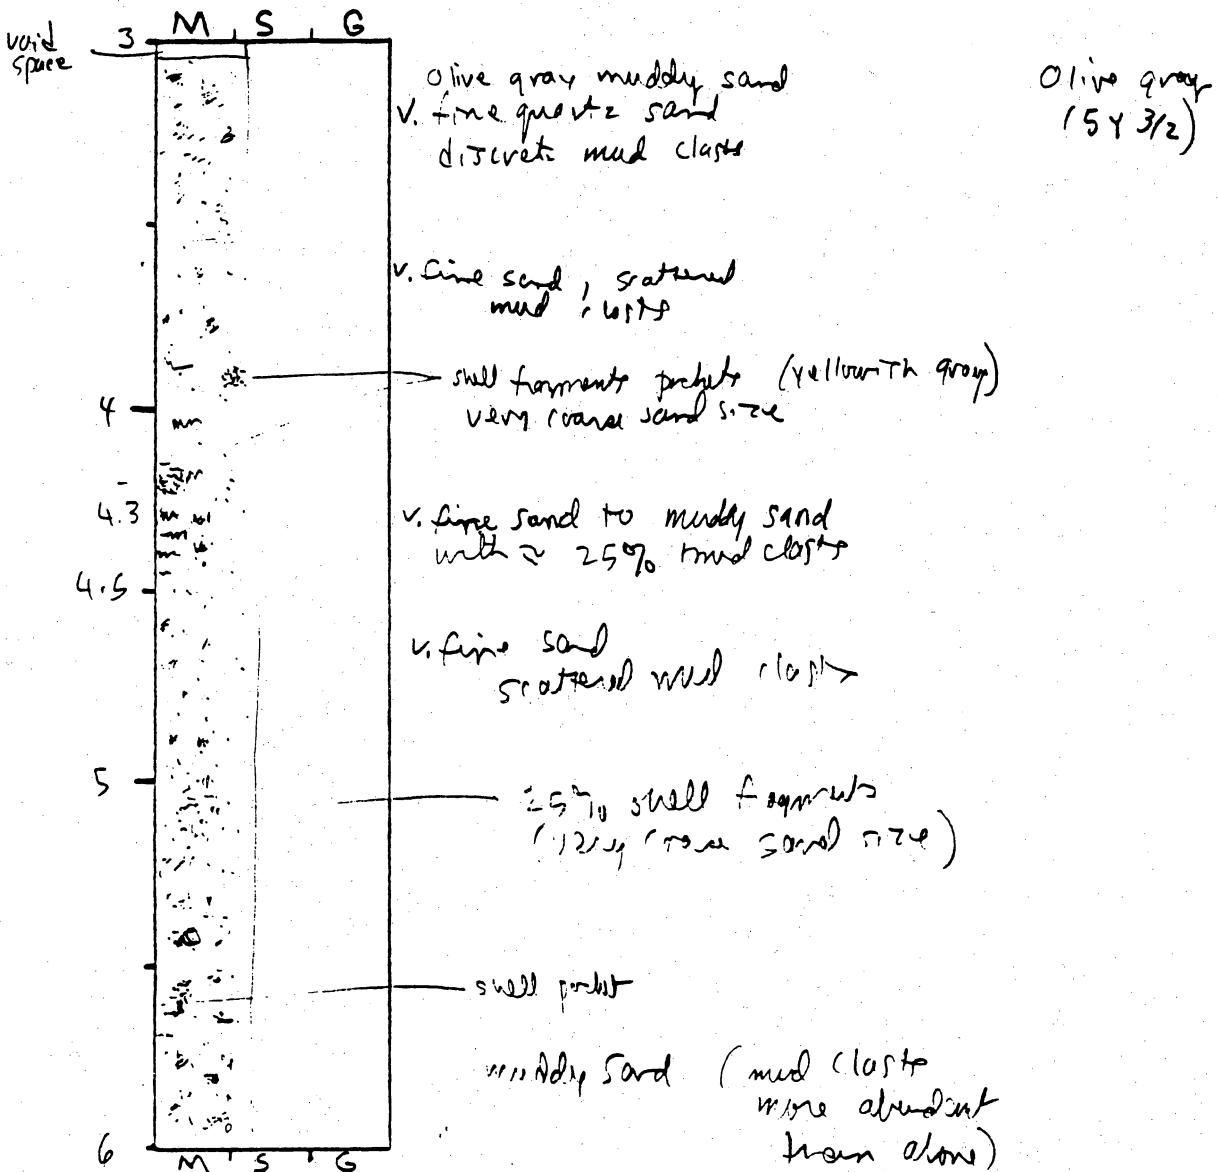 M S G
void
space
3
Olive gray muddy sand
v. fine quartz sand
discrete mud clasts
Olive gray
(5Y 3/2)
v. fine sand, scattered
mud clasts
shell fragments pockets (yellowish gray)
very coarse sand size
4
4.3
v. fine sand to muddy sand
with ≈ 25% mud clasts
4.5
v. fine sand
scattered mud clasts
5
25% shell fragments
(very coarse sand size)
shell pocket
muddy sand (mud clasts
more abundant
than above)
6
M S G